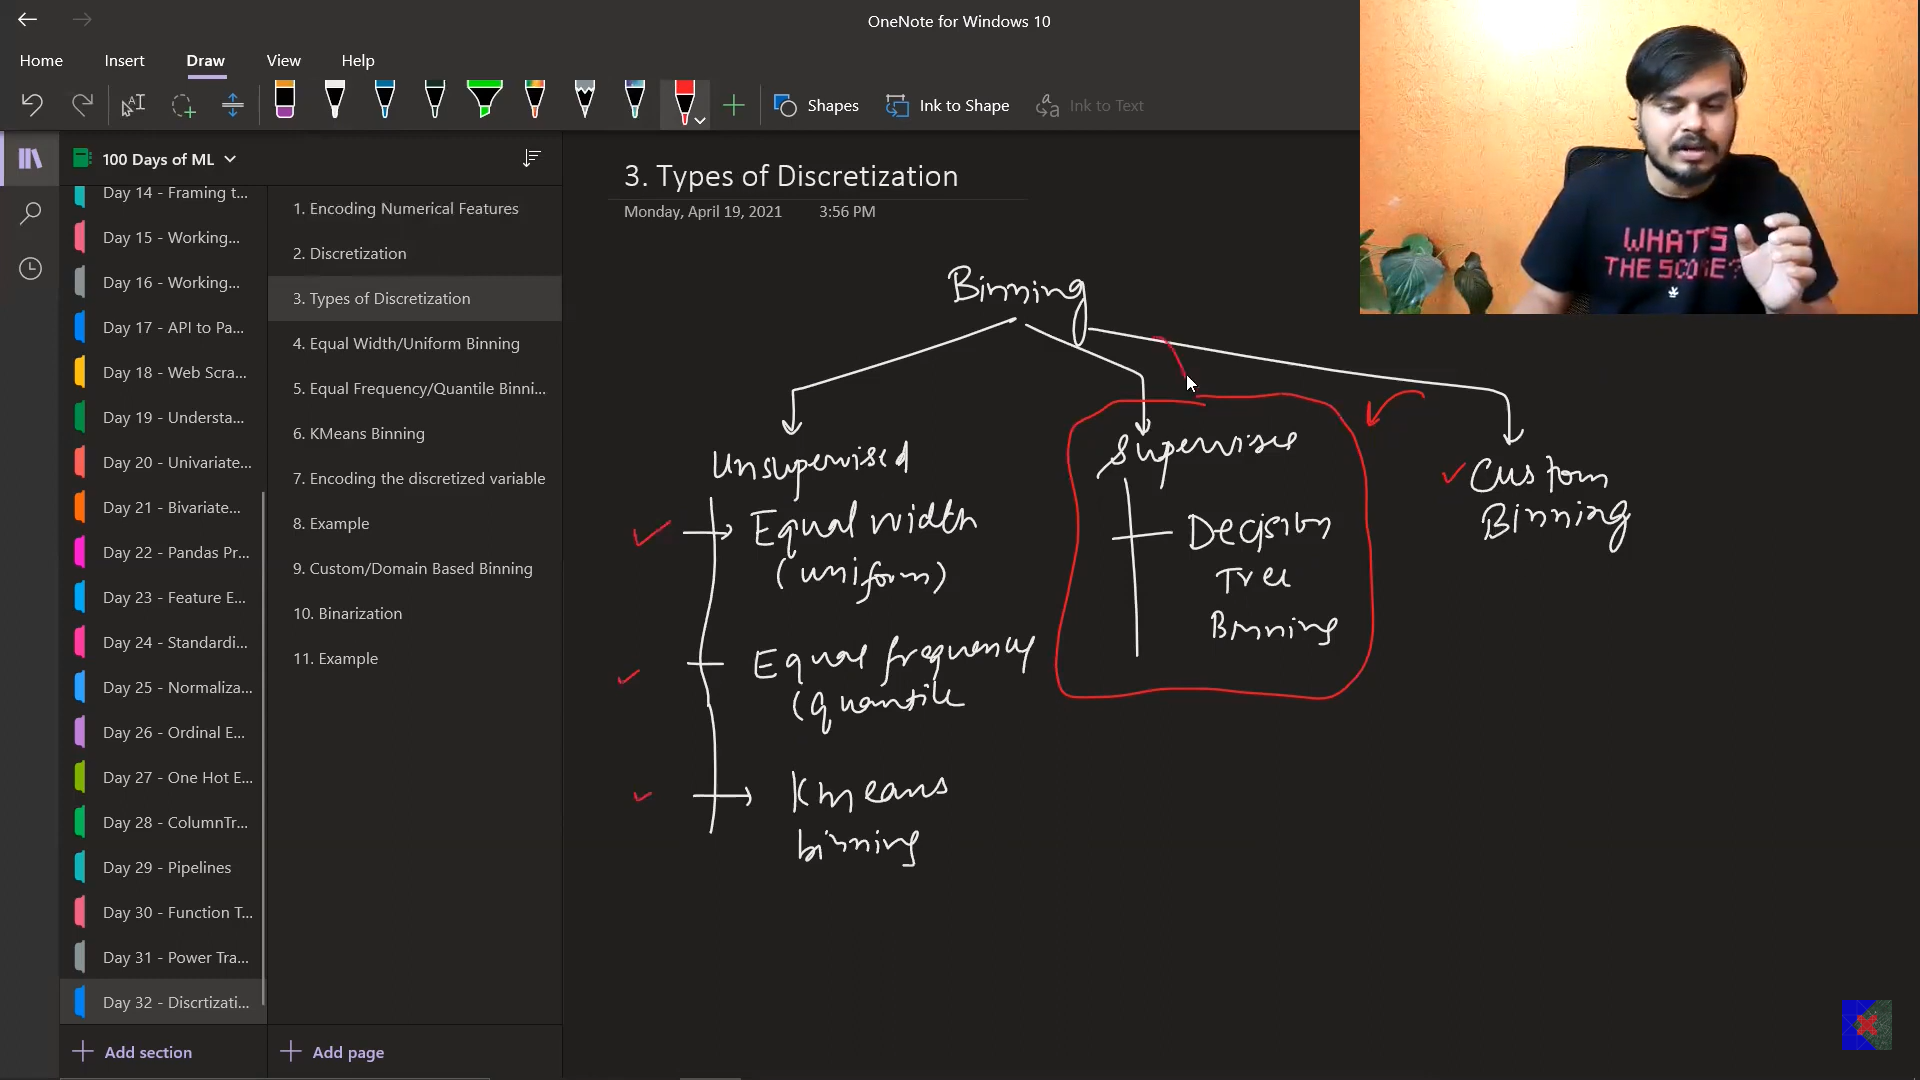 OneNote for Windows 10
Home
Insert
Draw
View
Help
Shapes
Ink to Shape
Ink to Text
100 Days of ML
Day 14 - Framing t...
Day 15 - Working...
Day 16 - Working...
Day 17 - API to Pa...
Day 18 - Web Scra...
Day 19 - Understa...
Day 20 - Univariate...
Day 21 - Bivariate...
Day 22 - Pandas Pr...
Day 23 - Feature E...
Day 24 - Standardi...
Day 25 - Normaliza...
Day 26 - Ordinal E...
Day 27 - One Hot E...
Day 28 - ColumnTr...
Day 29 - Pipelines
Day 30 - Function T...
Day 31 - Power Tra...
Day 32 - Discrtizati...
Add section
1. Encoding Numerical Features
2. Discretization
3. Types of Discretization
4. Equal Width/Uniform Binning
5. Equal Frequency/Quantile Binni...
6. KMeans Binning
7. Encoding the discretized variable
8. Example
9. Custom/Domain Based Binning
10. Binarization
11. Example
Add page
3. Types of Discretization
Monday, April 19, 2021 3:56 PM
Binning
Unsupervised
Equal width
(uniform)
Equal frequency
(quantile
Kmeans
binning
Supervise
Decision
Tree
Binning
Custom
Binning
WHAT'S
THE SCORE?